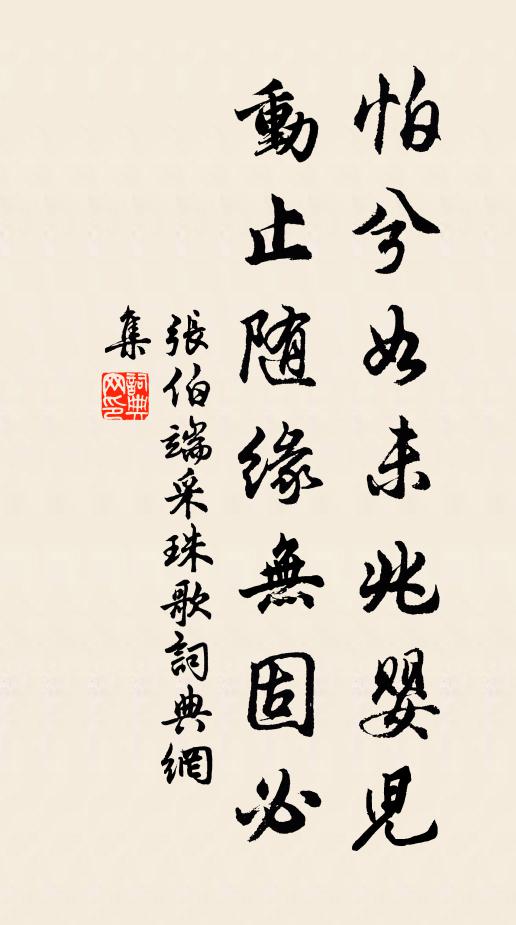 怕兮如未兆嬰兒
動止随緣無固必
張伯端采珠歌詞典網
集
詞典网印